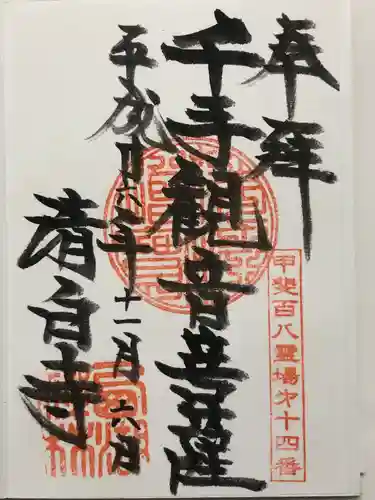 奉拝
甲斐百八霊場第十四番
千手観音菩薩
平成廿六年十一月十六日
清白寺